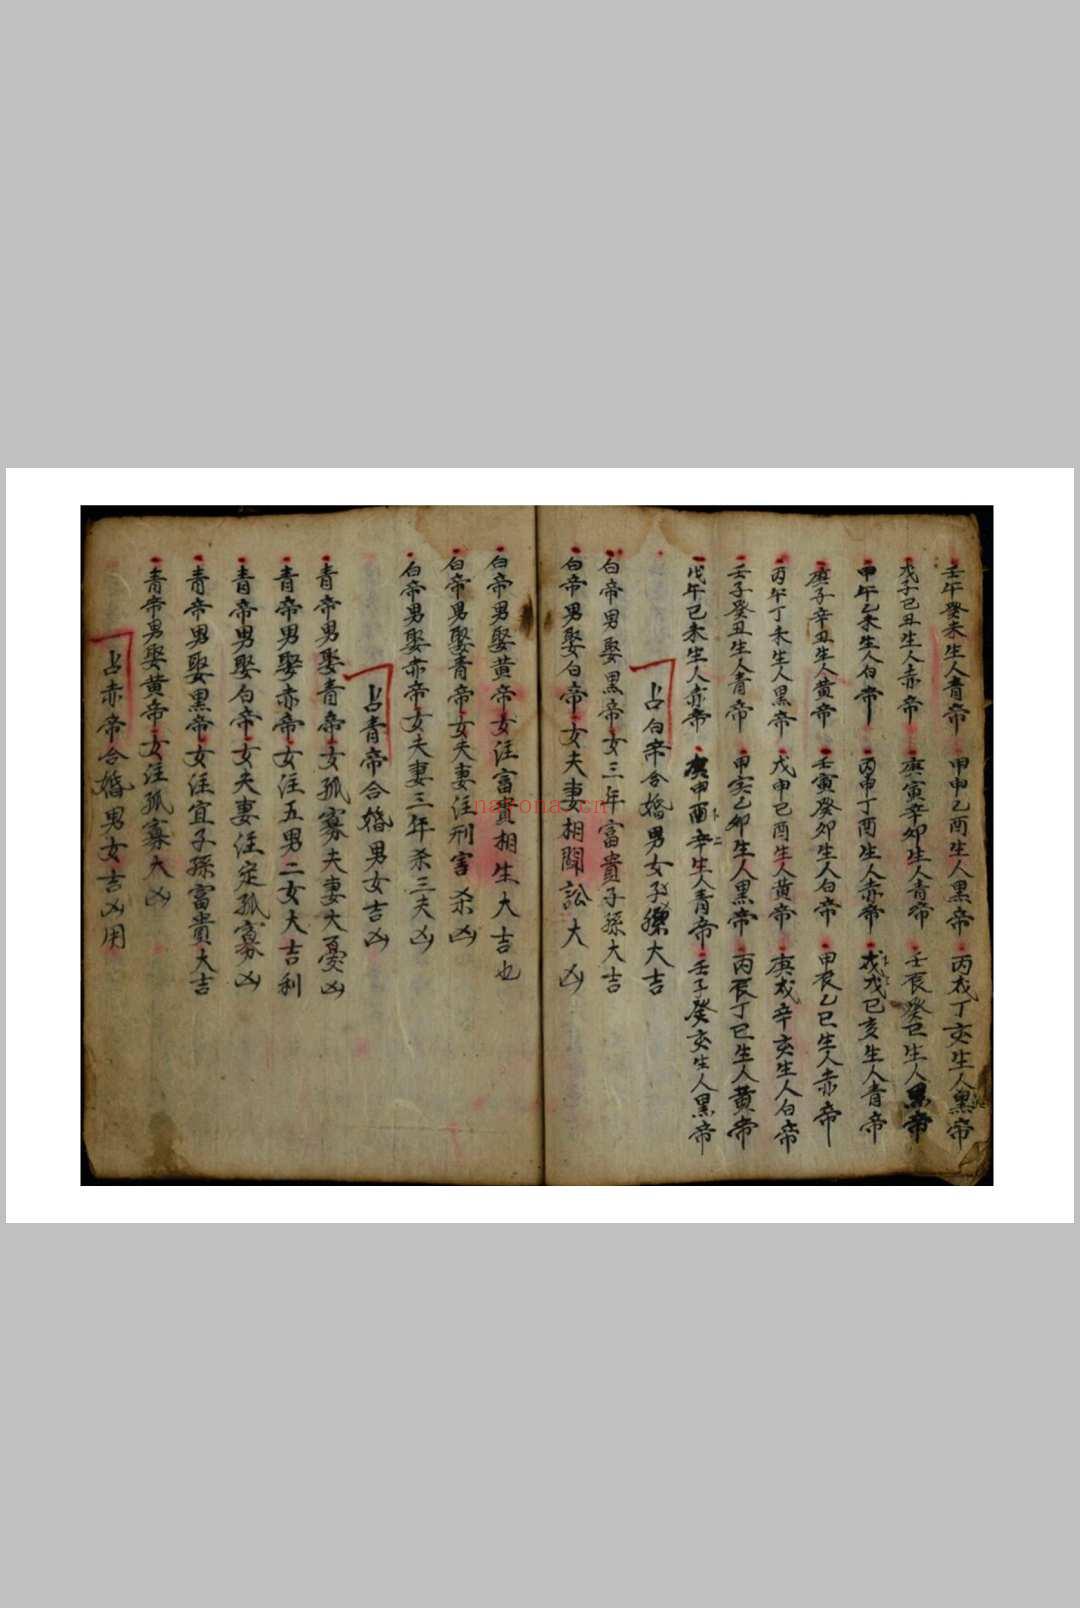 壬午癸未生人青帝 甲申乙酉生人黑帝 丙戌丁亥生人黑帝
戊子己丑生人赤帝 庚寅辛卯生人青帝 壬辰癸巳生人黑帝
甲午乙未生人白帝 丙申丁酉生人赤帝 戊戌己亥生人青帝
庚子辛丑生人黄帝 壬寅癸卯生人白帝 甲辰乙巳生人赤帝
丙午丁未生人黑帝 戊申己酉生人黄帝 庚戌辛亥生人白帝
壬子癸丑生人青帝 甲寅乙卯生人黑帝 丙辰丁巳生人黄帝
戊午己未生人赤帝 庚申酉辛生人青帝 壬子癸亥生人黑帝
占白帝合婚男女子孫大吉
白帝男娶黑帝女三年富貴子孫大吉
白帝男娶白帝女夫妻相鬪訟大凶
白帝男娶黄帝女注富貴相生大吉也
白帝男娶青帝女夫妻注刑害杀凶
白帝男娶赤帝女夫妻三年杀三夫凶
占青帝合婚男女吉凶
青帝男娶青帝女孤寡夫妻大憂凶
青帝男娶赤帝女注五男二女大吉利
青帝男娶白帝女夫妻注定孤寡凶
青帝男娶黑帝女注宜子孫富貴大吉
青帝男娶黄帝女注孤寡大凶
占赤帝合婚男女吉凶用
nayona.cn